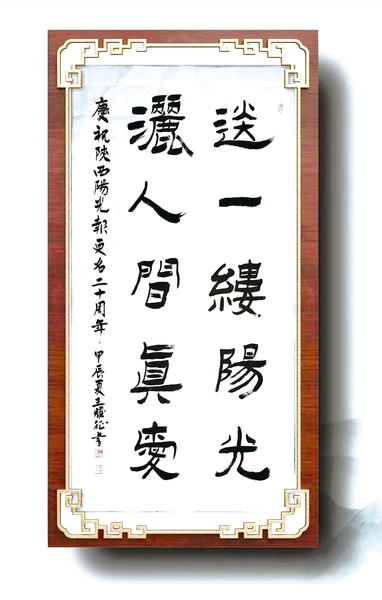 送一縷陽光
灑人間眞愛
慶祝陝西陽光報更名二十周年·甲辰夏王征書